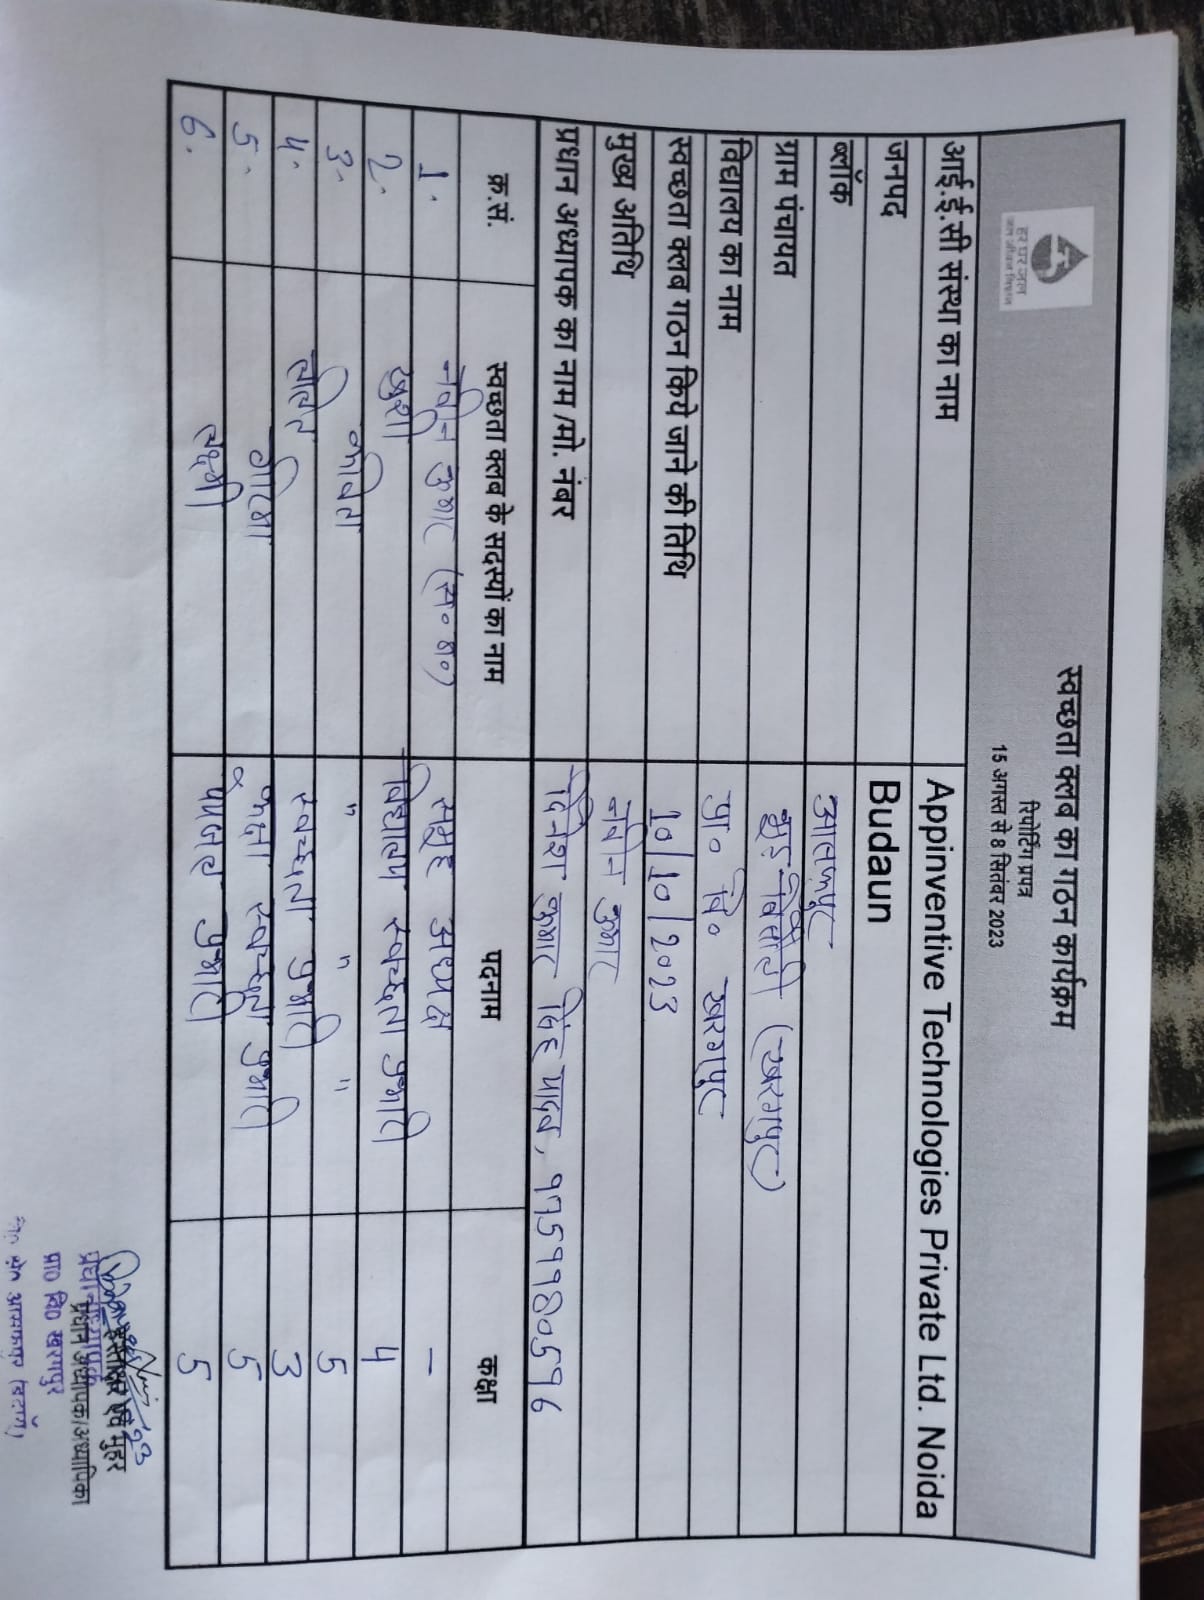 हर घर जल
जल जीवन मिशन
स्वच्छता क्लब का गठन कार्यक्रम
रिपोर्टिंग प्रपत्र
15 अगस्त से 8 सितंबर 2023
आई.ई.सी संस्था का नाम Appinventive Technologies Private Ltd. Noida
जनपद Budaun
ब्लॉक आसफपुर
ग्राम पंचायत (खरगपुर)
विद्यालय का नाम प्रा० वि० खरगपुर
स्वच्छता क्लब गठन किये जाने की तिथि 10/10/2023
मुख्य अतिथि नवीन कुमार
प्रधान अध्यापक का नाम /मो. नंबर दिनेश कुमार सिंह यादव, ९७५९९8०५९६
क्र.सं. स्वच्छता क्लब के सदस्यों का नाम पदनाम कक्षा
1. नवीन कुमार (स०अ०) समूह अध्यक्ष -
2. खुशी विद्यालय स्वच्छता प्रभारी 4
3. कविता " " " 5
4. ललित स्वच्छता प्रभारी 3
5. कक्षा स्वच्छता प्रभारी 5
6. लक्ष्मी पेयजल प्रभारी 5
हस्ताक्षर एवं मुहर
प्रधान अध्यापक/अध्यापिका
प्रधानाध्यापक
प्रा० वि० खरगपुर